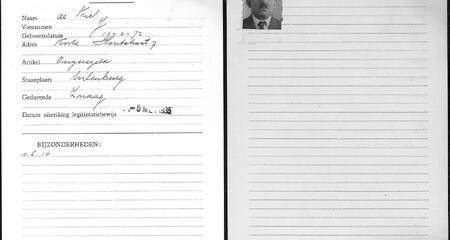 Naam de Vriel
Voornamen
Geboortedatum 13-2-72
Adres Korte Houtstraat 9
Artikel Ongeregeld
Standplaats Uilenburg
Gedurende Zondag
Datum uitreiking legitimatiebewijs 1935
BIJZONDERHEDEN:
a.b. 16